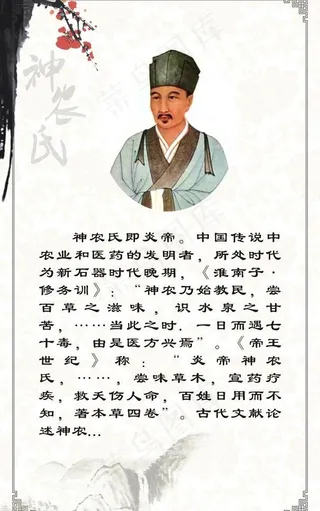 神农氏
神农氏即炎帝。中国传说中
农业和医药的发明者，所处时代
为新石器时代晚期，《淮南子·
修务训》：“神农乃始教民，尝
百草之滋味，识水泉之甘
苦，……当此之时．一日而遇七
十毒，由是医方兴焉”。《帝王
世纪》称：“炎帝神农
氏，……，尝味草木，宣药疗
疾，救夭伤人命，百姓日用而不
知，著本草四卷”。古代文献论
述神农...